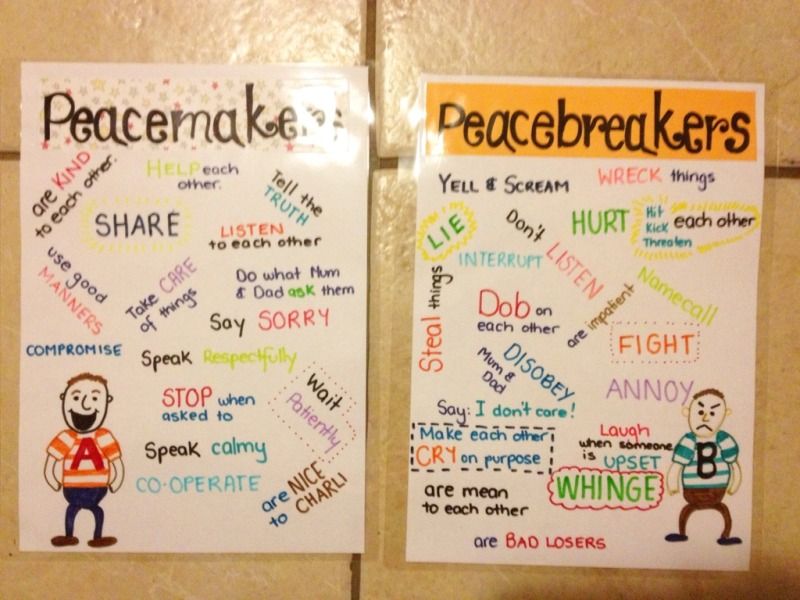 Peacemakers
are KIND
to each other.
HELP each
other.
Tell the
TRUTH
SHARE
LISTEN
to each other
use good
MANNERS
Take CARE
of things
Do what Mum
& Dad ask them
Say SORRY
COMPROMISE
Speak Respectfully
STOP when
asked to
Wait
Patiently
Speak calmy
CO-OPERATE
are NICE
to CHARLI
A
Peacebreakers
YELL & SCREAM
WRECK things
LIE
Don't
LISTEN
HURT
Hit
Kick
Threaten
each other
INTERRUPT
Steal things
Dob on
each other
are impatient
Namecall
FIGHT
DISOBEY
Mum &
Dad
ANNOY
Say: I don't care!
Make each other
CRY on purpose
Laugh
when someone
is UPSET
WHINGE
are mean
to each other
are BAD LOSERS
B